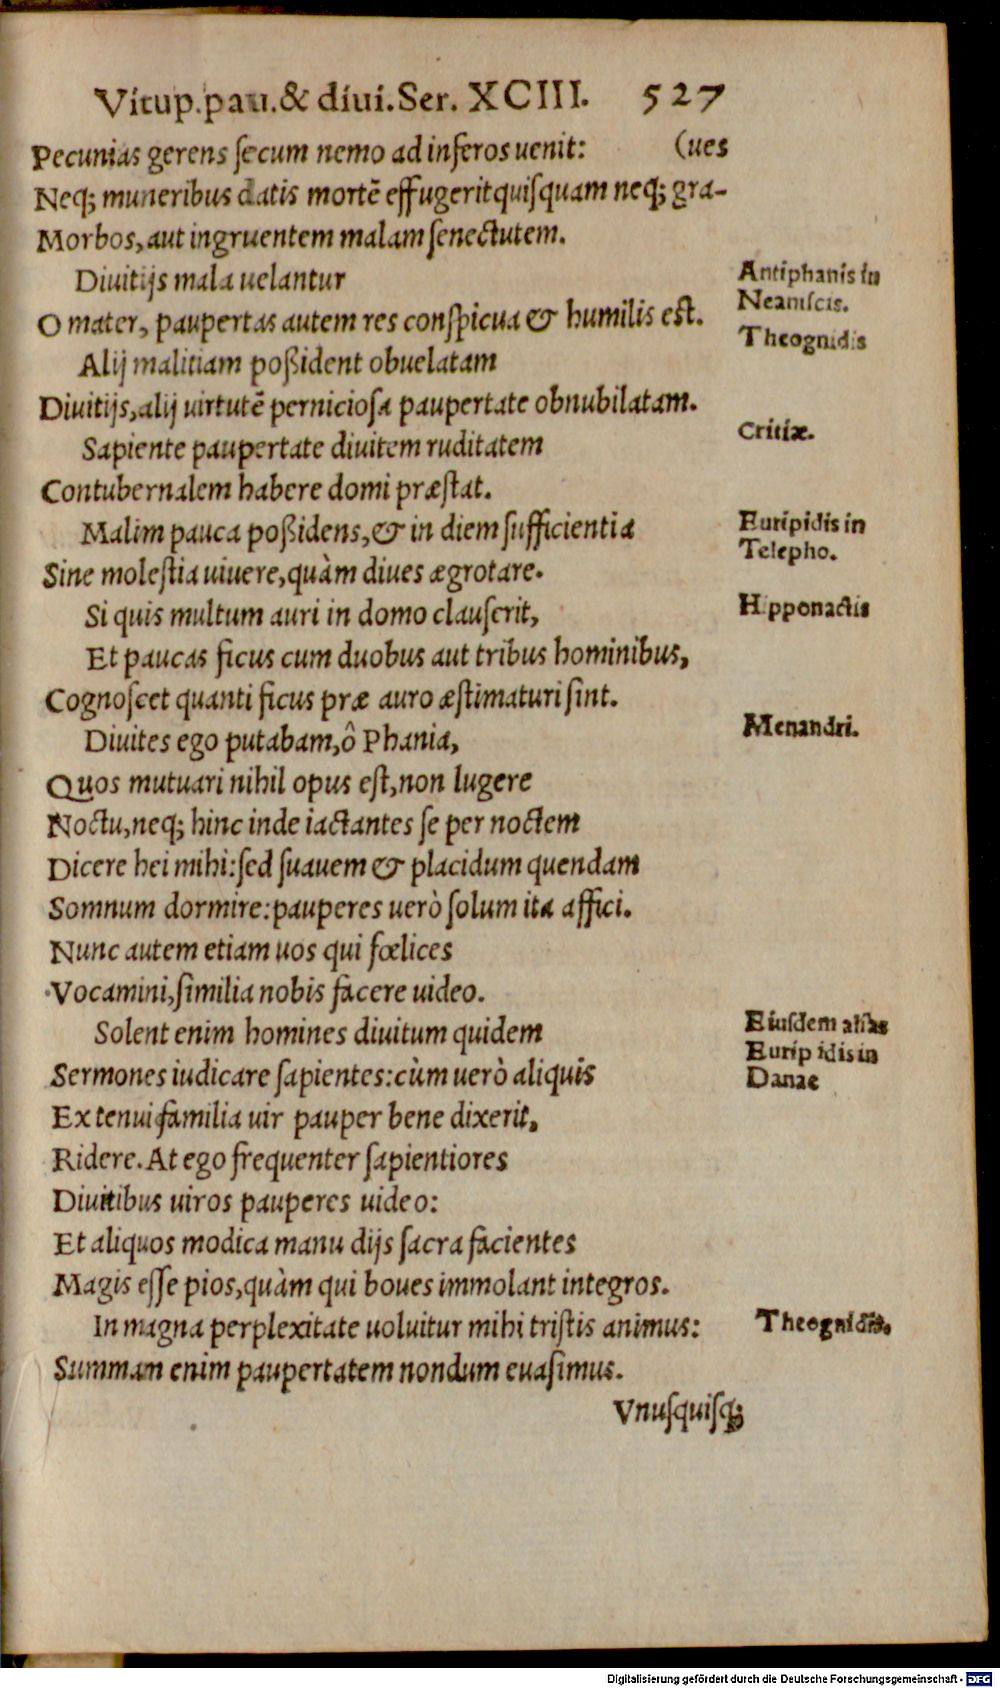 Vitup.pau.& diui.Ser. XCIII. 527
Pecunias gerens ſecum nemo ad inferos uenit: (ues
Neq; muneribus datis mortē effugerit quiſquam neq; gra-
Morbos, aut ingruentem malam ſenectutem.
Diuitijs mala uelantur
Antiphanis in
Neaniſcis.
O mater, paupertas autem res conſpicua & humilis eſt.
Theognidis
Alij malitiam poßident obuelatam
Diuitijs, alij uirtutē pernicioſa paupertate obnubilatam.
Sapiente paupertate diuitem ruditatem
Critiæ.
Contubernalem habere domi præſtat.
Malim pauca poßidens, & in diem ſufficientia
Euripidis in
Telepho.
Sine moleſtia uiuere, quàm diues ægrotare.
Si quis multum auri in domo clauſerit,
Hipponactis
Et paucas ficus cum duobus aut tribus hominibus,
Cognoſcet quanti ficus præ auro æſtimaturi ſint.
Diuites ego putabam, ô Phania,
Menandri.
Quos mutuari nihil opus eſt, non lugere
Noctu, neq; hinc inde iactantes ſe per noctem
Dicere hei mihi: ſed ſuauem & placidum quendam
Somnum dormire: pauperes uerò ſolum ita affici.
Nunc autem etiam uos qui fœlices
Vocamini, ſimilia nobis facere uideo.
Solent enim homines diuitum quidem
Eiuſdem aliàs
Euripidis in
Danae
Sermones iudicare ſapientes: cùm uerò aliquis
Ex tenui familia uir pauper bene dixerit,
Ridere. At ego frequenter ſapientiores
Diuitibus uiros pauperes uideo:
Et aliquos modica manu dijs ſacra facientes
Magis eſſe pios, quàm qui boues immolant integros.
In magna perplexitate uoluitur mihi triſtis animus:
Theognidis.
Summam enim paupertatem nondum euaſimus.
Vnuſquiſq;
Digitalisierung gefördert durch die Deutsche Forschungsgemeinschaft - DFG